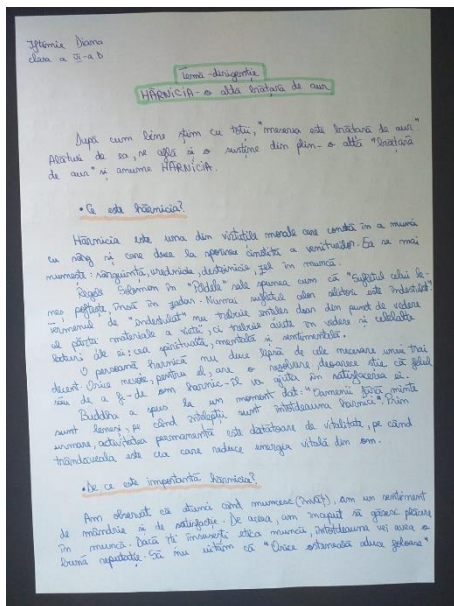 Iftimie Diana
clasa a VI-a B
Temă-dirigenție
HĂRNICIA-o altă brățară de aur
După cum bine știm cu toții, "meseria este brățară de aur".
Alături de ea, se află și o susține din plin-o altă "brățară
de aur" și anume HĂRNICIA.
• Ce este hărnicia?
Hărnicia este una din virtuțile morale care constă în a munci
cu râvg și care duce la sporirea cinstită a veniturilor. Ea se mai
numește: sârguință, vrednicie, destoinicie, zel în muncă.
Regele Solomon în "Pildele" sale spunea cum că "Sufletul celui le-
neș poftește, însă în zadar. Numai sufletul celor silitori este îndestulat"
Termenul de "îndestulat" nu trebuie înțeles doar din punct de vedere
al părții materiale a vieții, ci trebuie avute în vedere și celelalte
laturi ale ei: cea spirituală, mentală și sentimentală.
O persoană harnică nu duce lipsă de cele necesare unui trai
decent. Orice nevoie, pentru el, are o rezolvare, deoarece știe că felul
său de a fi-de om harnic-îl va ajuta în satisfacerea ei.
Buddha a spus la un moment dat: "Oamenii fără minte
sunt leneși, pe când înțelepții sunt întotdeauna harnici". Prin
urmare, activitatea permanentă este dătătoare de vitalitate, pe când
trândăveala este cea care reduce energia vitală din om.
• De ce este importantă hărnicia?
Am observat că atunci când muncesc (învăț), am un sentiment
de mândrie și de satisfacție. De aceea, am început să găsesc plăcere
în muncă. Dacă îți însușești etica muncii, întotdeauna vei avea o
bună reputație. Să nu uităm că "Orice osteneală aduce foloase"